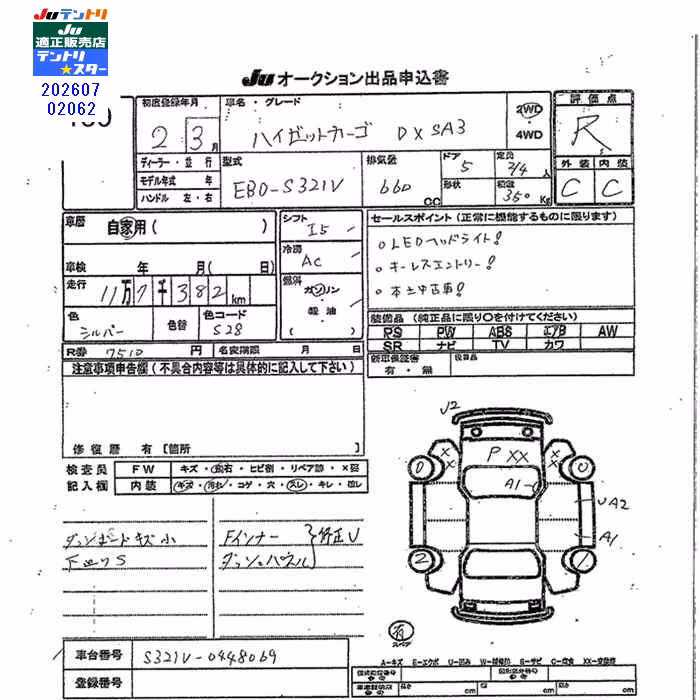 JUテントリ
JU
適正販売店
テントリ
★スター
202607
02062
JU オークション出品申込書
初度登録年月
2 3月
車名・グレード
ハイゼットカーゴ DX SA3
2WD
4WD
評価点
R
外装 内装
C C
ディーラー・並行
モデル年式 年
ハンドル 左・右
型式
EBD-S321V
排気量
660
CC
ドア
5
形状
定員
2/4人
積載
350Kg
車歴
自家用( )
シフト
I5
冷房
AC
燃料
ガソリン
軽油
車検 年 月( 日)
走行
11万7千382km
色
シルバー
色替
色コード
S28
R番 7510 円
名変期限 月 日
セールスポイント(正常に機能するものに限ります)
○LEDヘッドライト!
○キーレスエントリー!
○本土中古車!
装備品(純正品に限り○を付けてください)
PS PW ABS エアB AW
SR ナビ TV カワ
新車保証書
有・無
後日品
注意事項申告欄(不具合内容等は具体的に記入して下さい)
修復歴 有[箇所 ]
検査員
記入欄
FW キズ・飛石・ヒビ割・リペア跡・X要
内装 キズ・汚れ・コゲ・穴・スレ・キレ・
ダッシュボードキズ小
Fインナー
ダッシュパネル
矯正U
J2
P XX
A1
UA2
A1
0 0
2
有
スペア
車台番号 S321V-0448069
登録番号
A-キズ E-エクボ U-凹み W-補修跡 S-サビ C-腐食 XX-交換歴
長さ cm 幅 cm 高さ cm